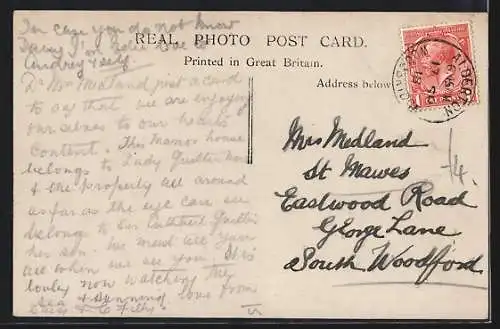 In case you do not know
Daisy is on
Audrey & self
REAL PHOTO POST CARD.
Printed in Great Britain.
Address below
ALDERTON
WOODBRIDGE
Dr Mrs Medland just a card
to say that we are enjoying
ourselves to our hearts
content. This Manor house
belongs to Lady Quilter now
& the property all around
as far as the eye can see
belong to Sir Cuthbert Quilter
her son. We must tell you
all when we see you. It is
lovely now watching the
sea & Love from
Mrs Medland
St Mawes
Eastwood Road
George Lane
South Woodford